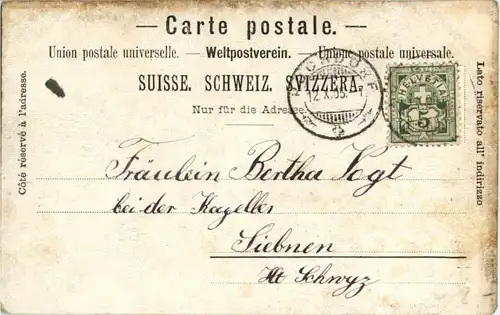 — Carte postale. —
Union postale universelle. — Weltpostverein. — Unione postale universale.
SUISSE. SCHWEIZ. SVIZZERA.
Nur für die Adresse.
Côté réservé à l'adresse.
Lato riservato all' indirizzo
HELVETIA
5
Fräulein Bertha Vogt
bei der Kapelle
Siebnen
Kt Schwyz